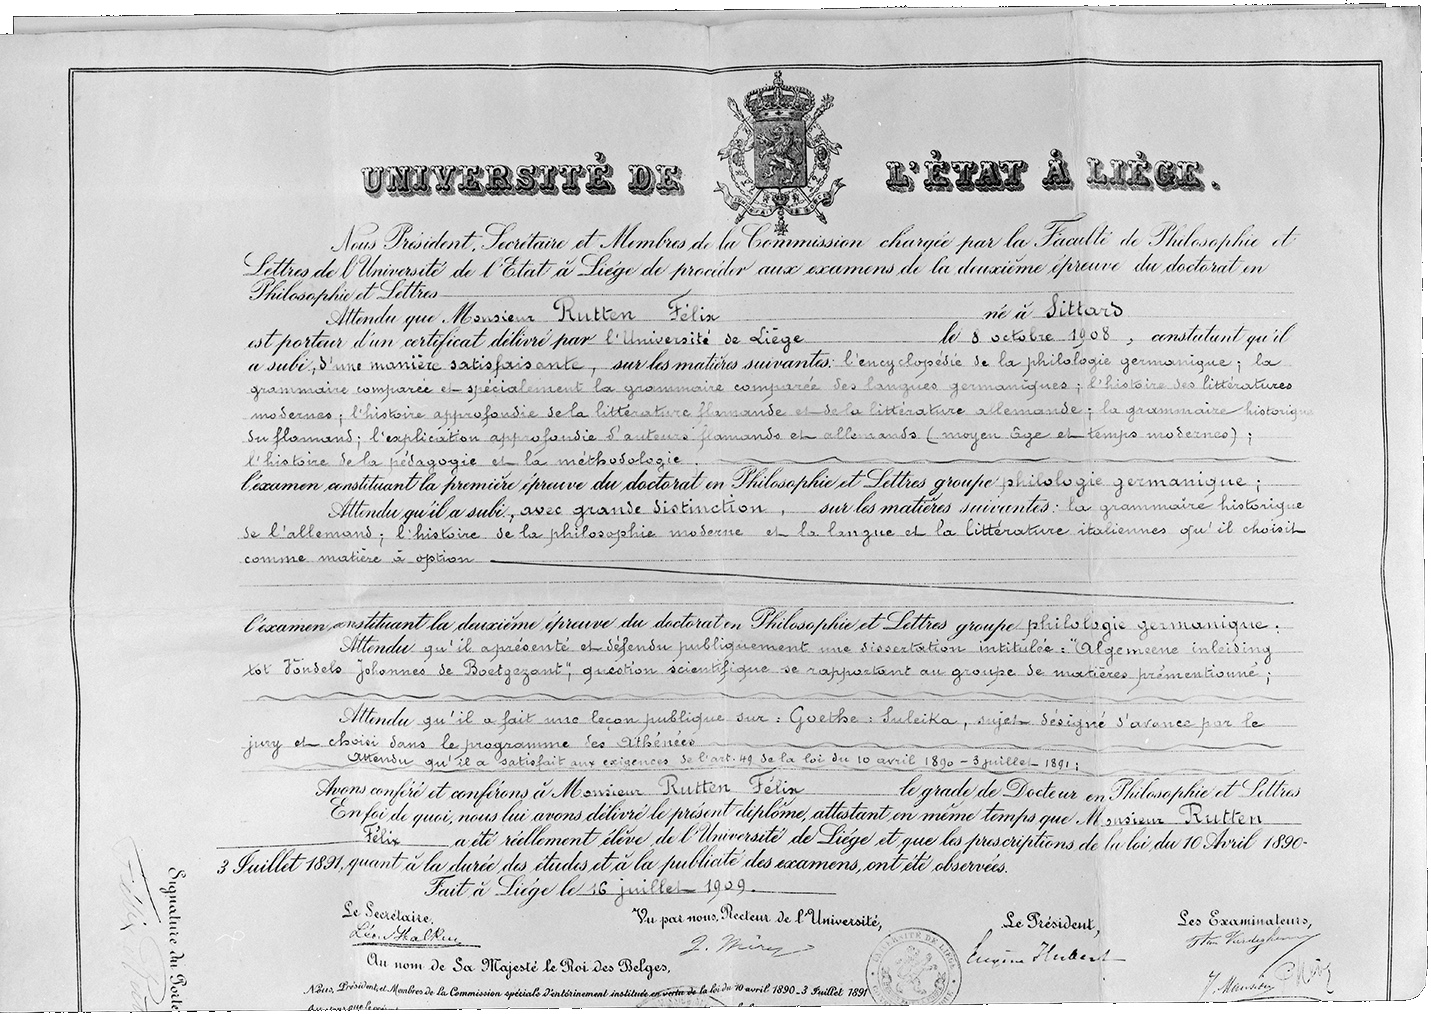 UNIVERSITÉ DE L'ÉTAT À LIÉGE.
Nous Président, Secrétaire et Membres de la Commission chargée par la Faculté de Philosophie et
Lettres de l'Université de l'Etat à Liége de procéder aux examens de la deuxième épreuve du doctorat en
Philosophie et Lettres
Attendu que Monsieur Rutten Félix né à Sittard
est porteur d'un certificat délivré par l'Université de Liège le 8 octobre 1908, constatant qu'il
a subi, d'une manière satisfaisante, sur les matières suivantes: l'encyclopédie de la philologie germanique; la
grammaire comparée et spécialement la grammaire comparée des langues germaniques; l'histoire des littératures
modernes; l'histoire approfondie de la littérature flamande et de la littérature allemande; la grammaire historique
du flamand; l'explication approfondie d'auteurs flamands et allemands (moyen âge et temps modernes);
l'histoire de la pédagogie et la méthodologie.
l'examen constituant la première épreuve du doctorat en Philosophie et Lettres groupe philologie germanique;
Attendu qu'il a subi, avec grande distinction, sur les matières suivantes: la grammaire historique
de l'allemand; l'histoire de la philosophie moderne et la langue et la littérature italiennes qu'il choisit
comme matière à option
l'examen constituant la deuxième épreuve du doctorat en Philosophie et Lettres groupe philologie germanique.
Attendu qu'il a présenté et défendu publiquement une dissertation intitulée: "Algemeene inleiding
tot Vondels Johannes de Boetgezant", question scientifique se rapportant au groupe de matières prémentionné;
Attendu qu'il a fait une leçon publique sur: Goethe: Suleika, sujet désigné d'avance par le
jury et choisi dans le programme des Athénées
Attendu qu'il a satisfait aux exigences de l'art. 49 de la loi du 10 avril 1890 - 3 juillet 1891;
Avons conféré et conférons à Monsieur Rutten Félix le grade de Docteur en Philosophie et Lettres
En foi de quoi, nous lui avons délivré le présent diplôme, attestant en même temps que Monsieur Rutten
Félix a été réellement élève de l'Université de Liége et que les prescriptions de la loi du 10 Avril 1890-
3 Juillet 1891, quant à la durée des études et à la publicité des examens, ont été observées.
Fait à Liége le 16 juillet 1909.
Le Secrétaire, Vu par nous, Recteur de l'Université, Le Président, Les Examinateurs,
Eugène Hubert
Au nom de Sa Majesté le Roi des Belges,
Nous, Président, et Membres de la Commission spéciale d'entérinement instituée en vertu de la loi du 10 avril 1890-3 Juillet 1891
Signature du
Félix